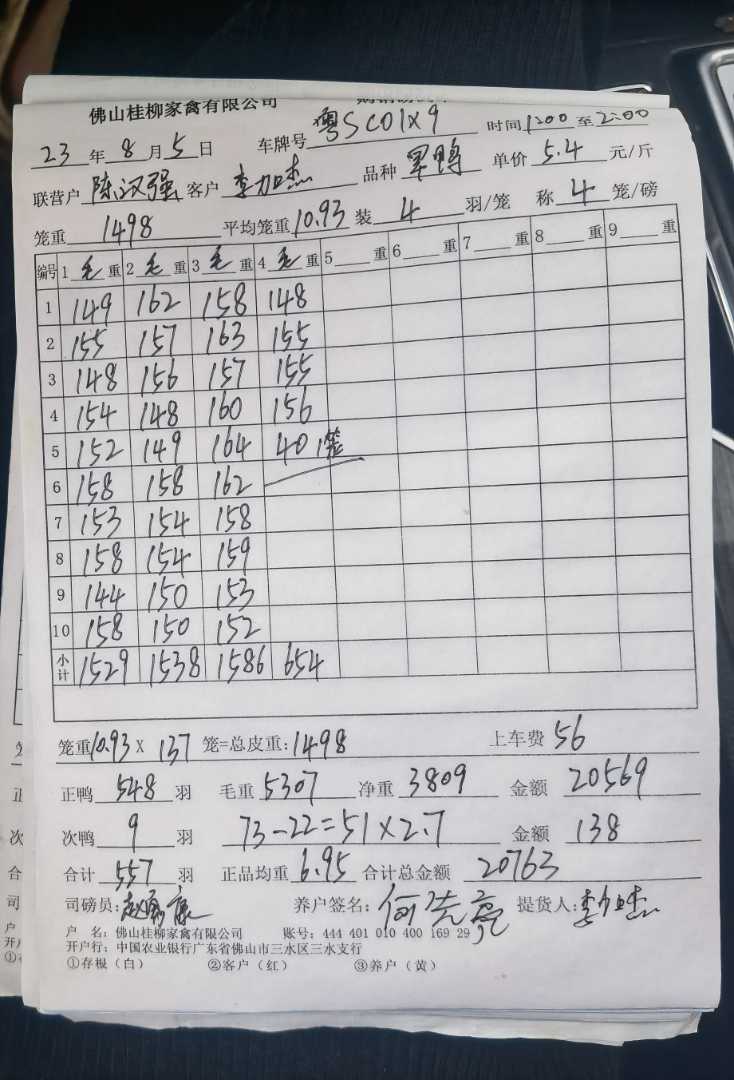 佛山桂柳家禽有限公司
23 年 8 月 5 日 车牌号 粤SC01X9 时间 1:00 至 2:00
联营户 陈汉强 客户 李加杰 品种 军鸭 单价 5.4 元/斤
笼重 1498 平均笼重 10.93 装 4 羽/笼 称 4 笼/磅
编号 1 毛 重 2 毛 重 3 毛 重 4 毛 重 5 重 6 重 7 重 8 重 9 重
1 149 162 158 148
2 155 157 163 155
3 148 156 157 155
4 154 148 160 156
5 152 149 164 40 1笼
6 158 158 162
7 153 154 158
8 158 154 159
9 144 150 153
10 158 150 152
小计 1529 1538 1586 654
笼重 10.93 X 137 笼=总皮重: 1498 上车费 56
正鸭 548 羽 毛重 5307 净重 3809 金额 20569
次鸭 9 羽 73-22=51×2.7 金额 138
合计 557 羽 正品均重 6.95 合计总金额 20763
司磅员: 养户签名: 提货人: 李加杰
户 名: 佛山桂柳家禽有限公司 账号: 444 401 010 400 169 29
开户行: 中国农业银行广东省佛山市三水区三水支行
①存根(白) ②客户(红) ③养户(黄)